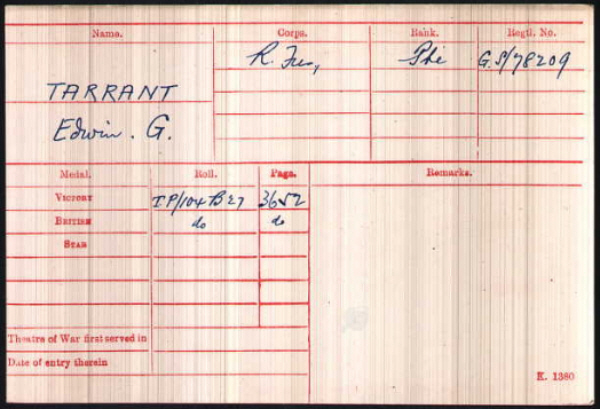 Name. Corps. Rank. Regtl. No.
R. Fus, Pte G.S/78209
TARRANT
Edwin. G.
Medal. Roll. Page. Remarks.
VICTORY TP/104 B27 3652
BRITISH do do
STAR
Theatre of War first served in
Date of entry therein
K. 1380